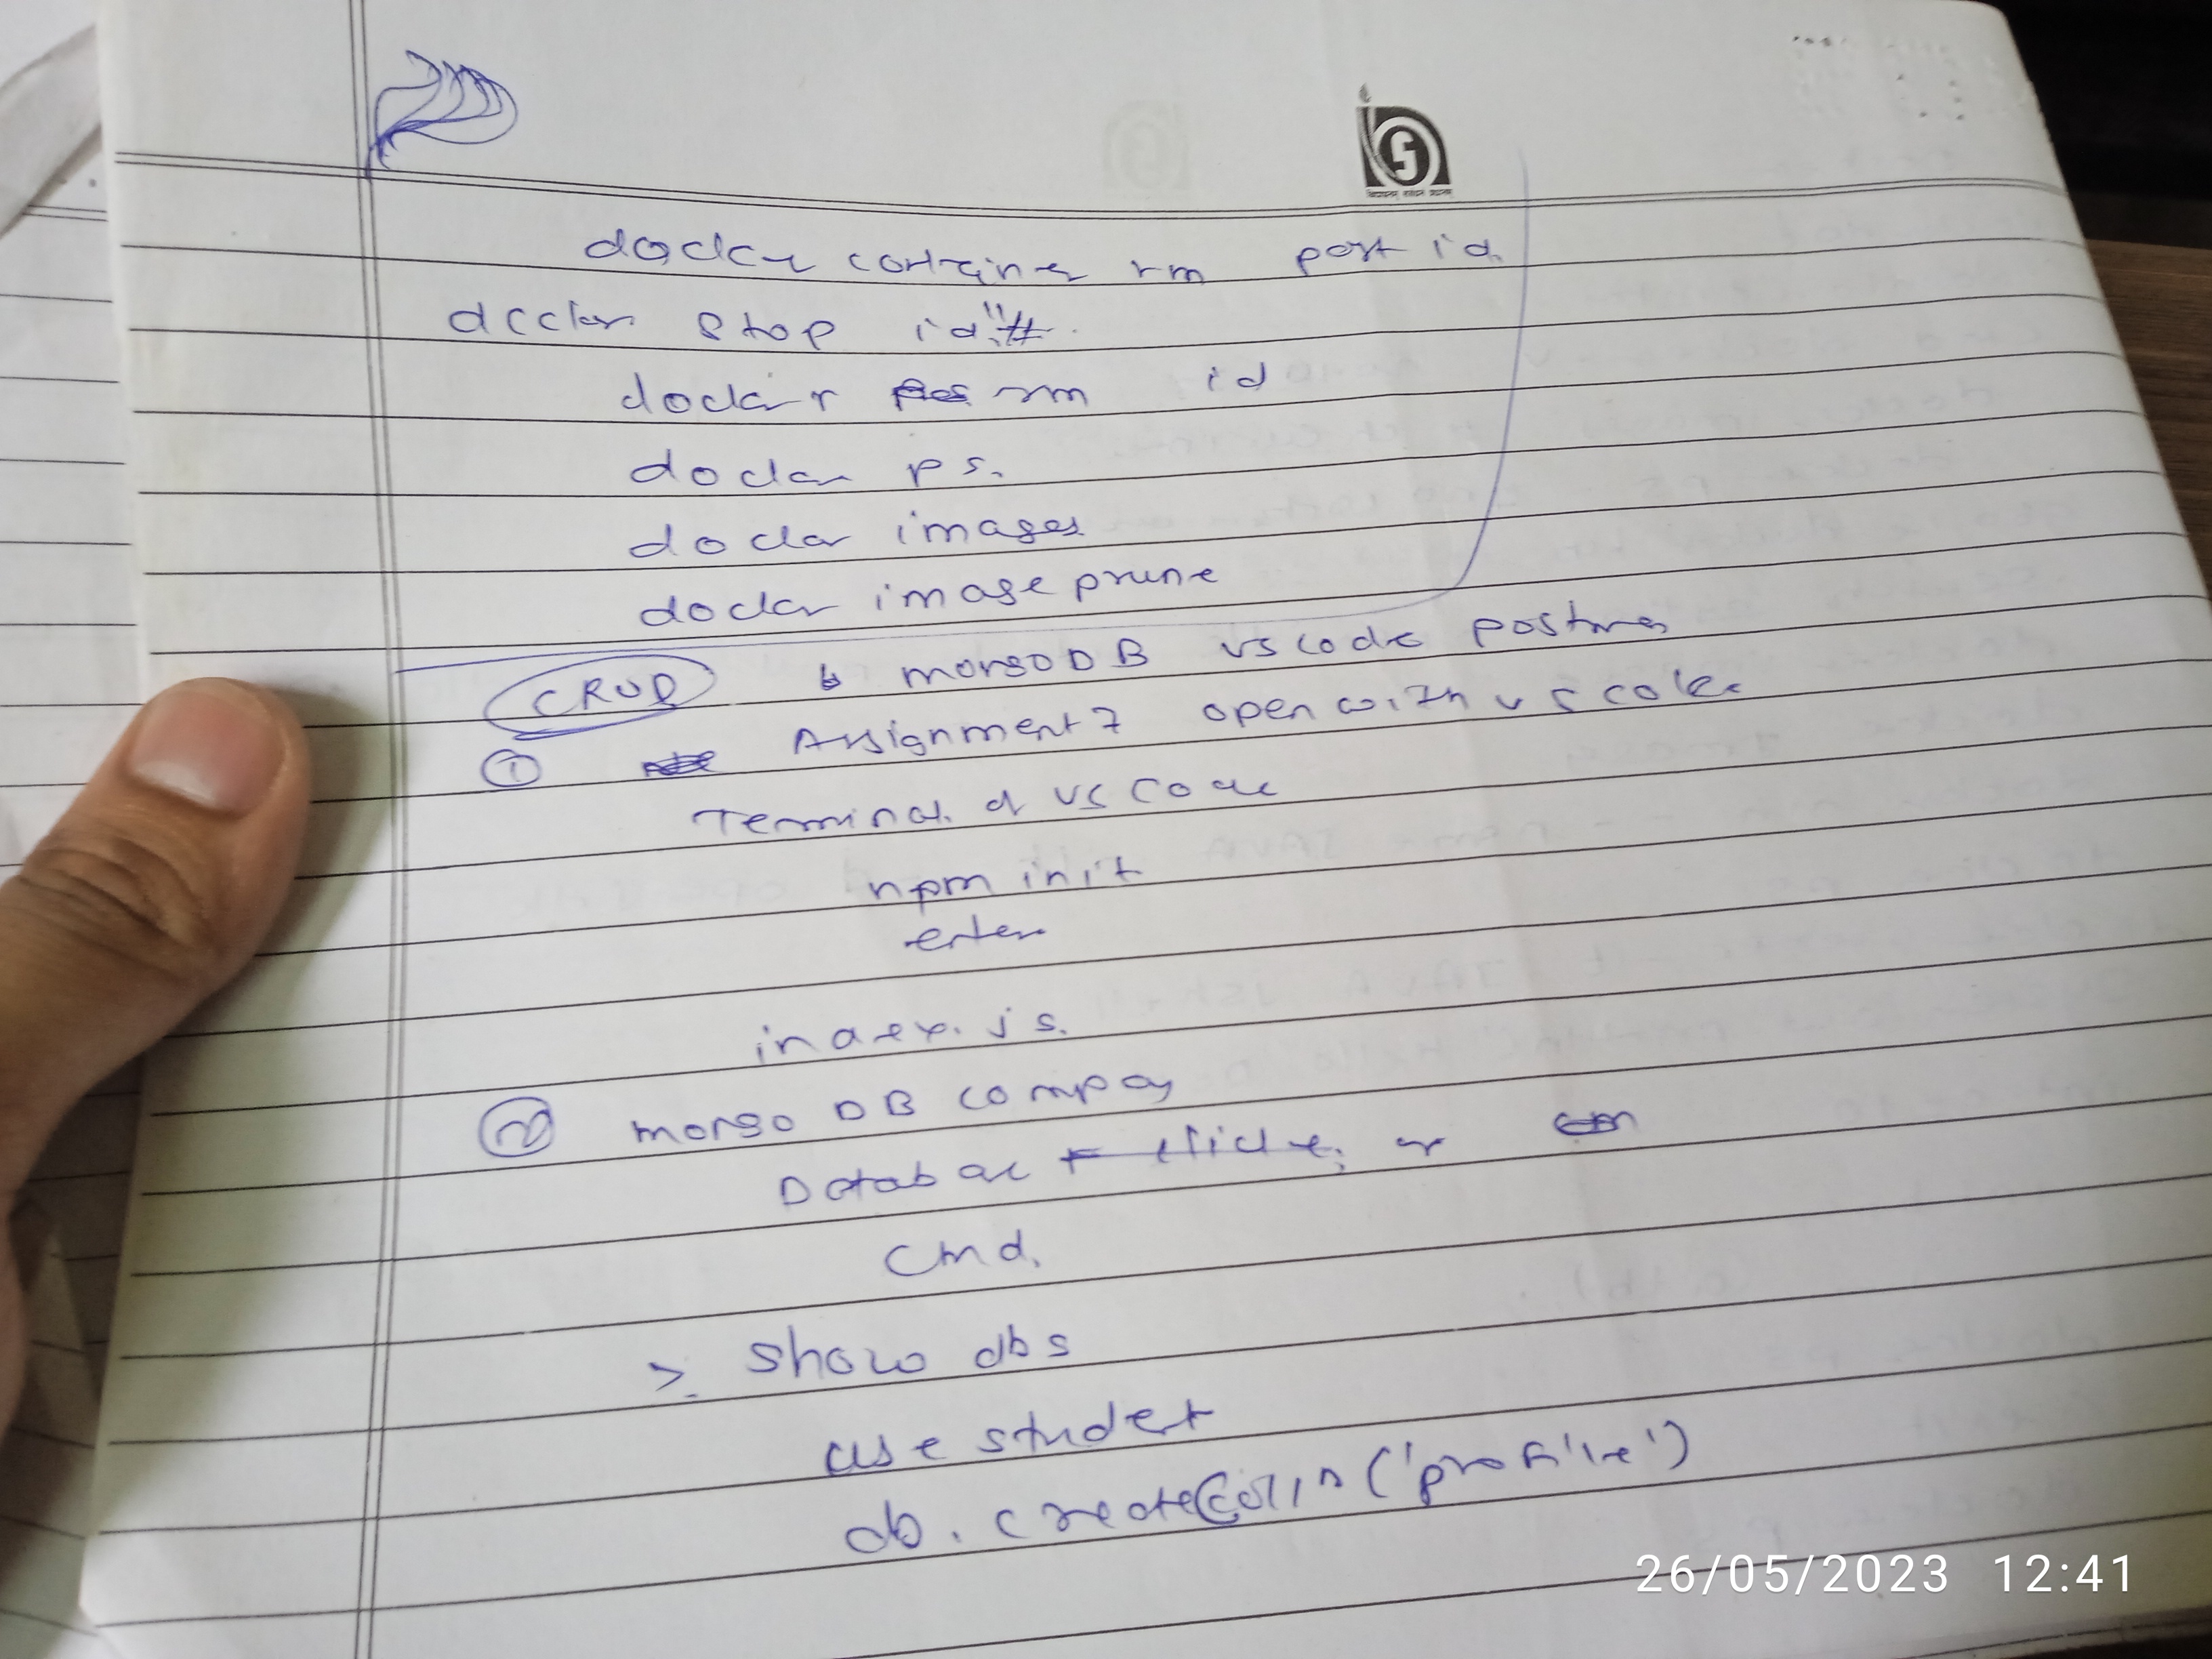 docker container rm port id.
docker stop id
docker rm id
docker ps.
docker images
docker image prune
CRUD mongoDB vs code postman
① Assignment 7 open with vs code
Terminal of VS Code
npm init
enter
index.js.
② mongo DB compas
Database or
Cmd.
> show dbs
use student
db.createColln('profile')
26/05/2023 12:41